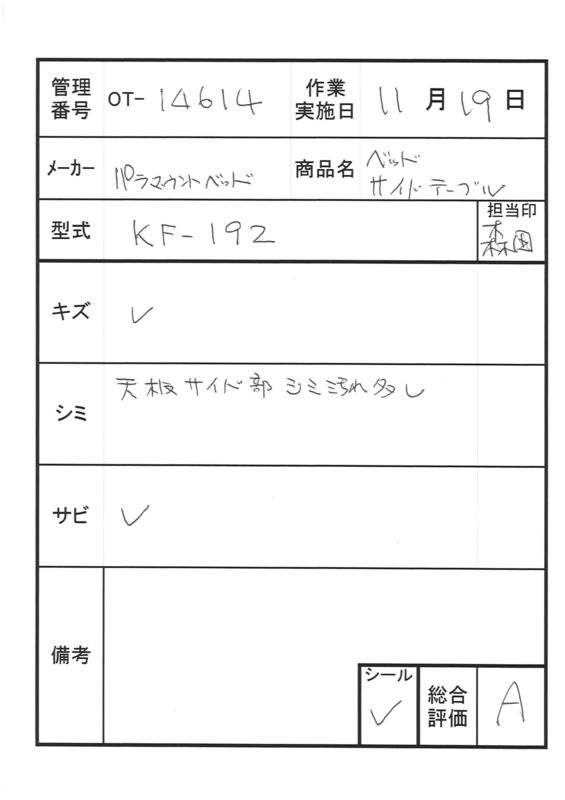 管理番号 OT-14614 作業実施日 11月19日
メーカー パラマウントベッド 商品名 ベッド
サイドテーブル
型式 KF-192 担当印
森田
キズ ✓
シミ 天板サイド部 シミ汚れ多し
サビ ✓
備考
シール ✓ 総合評価 A